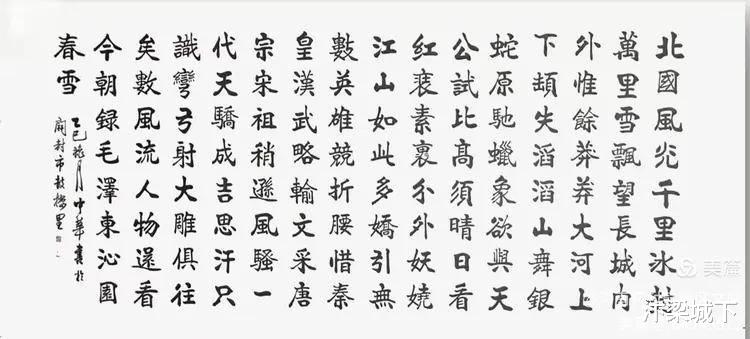 北國風光千里冰封
萬里雪飄望長城内
外惟餘莽莽大河上
下頓失滔滔山舞銀
蛇原馳蠟象欲與天
公試比高須晴日看
紅裝素裹分外妖嬈
江山如此多嬌引無
數英雄競折腰惜秦
皇漢武略輸文采唐
宗宋祖稍遜風騷一
代天驕成吉思汗只
識彎弓射大雕俱往
矣數風流人物還看
今朝録毛澤東沁園
春雪
乙巳月中華書於
開封市鼓樓里
美篇
汴梁城下